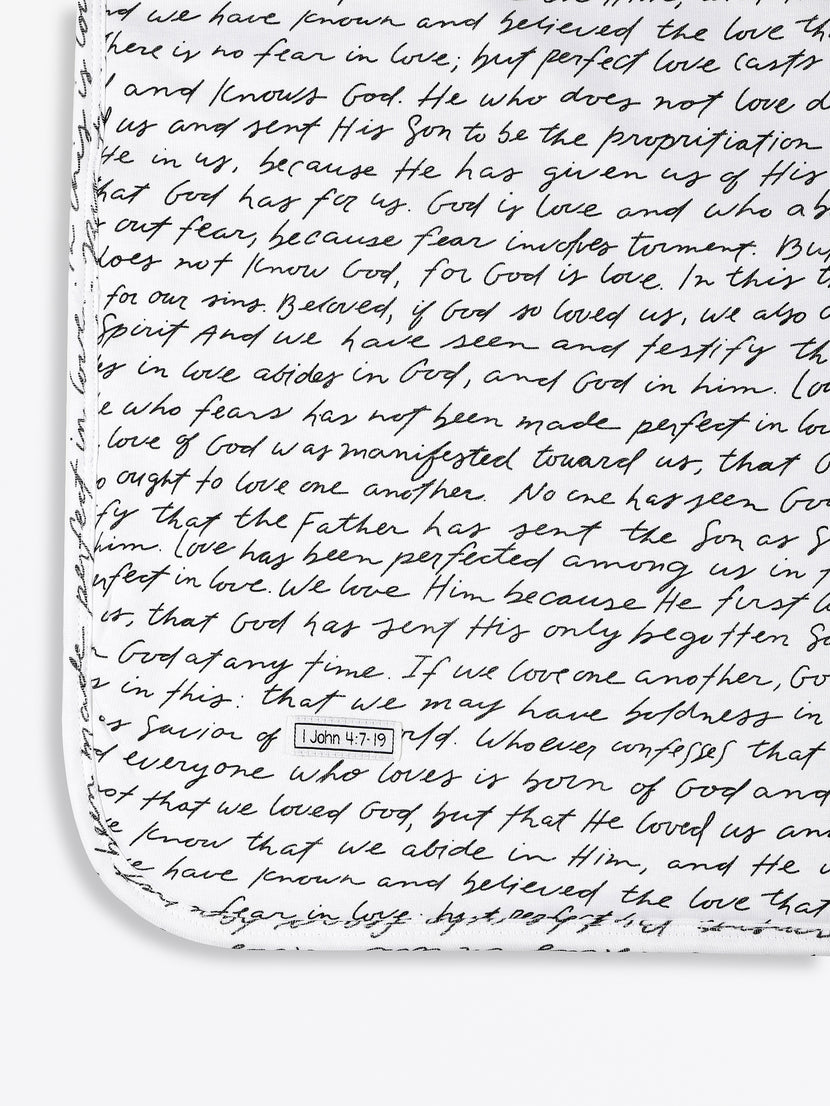 and we have known and believed the love
There is no fear in love; but perfect love casts
and knows God. He who does not love
us and sent His Son to be the propritiation
He in us, because He has given us of His
that God has for us. God is love and who
out fear, because fear involves torment. But
does not know God, for God is love. In this
for our sins. Beloved, if God so loved us, we also
Spirit And we have seen and testify
in love abides in God, and God in him.
who fears has not been made perfect in
love of God was manifested toward us, that
ought to love one another. No one has seen God
that the Father has sent the Son as
him. Love has been perfected among us in
perfect in love. We love Him because He first
us, that God has sent His only begotten
God at any time. If we love one another,
in this: that we may have boldness in
as Savior of
1 John 4:7-19
Whoever confesses that
everyone who loves is born of God and
not that we loved God, but that He loved us and
know that we abide in Him, and He
we have known and believed the love that
fear in love
been made perfect in love. in this is